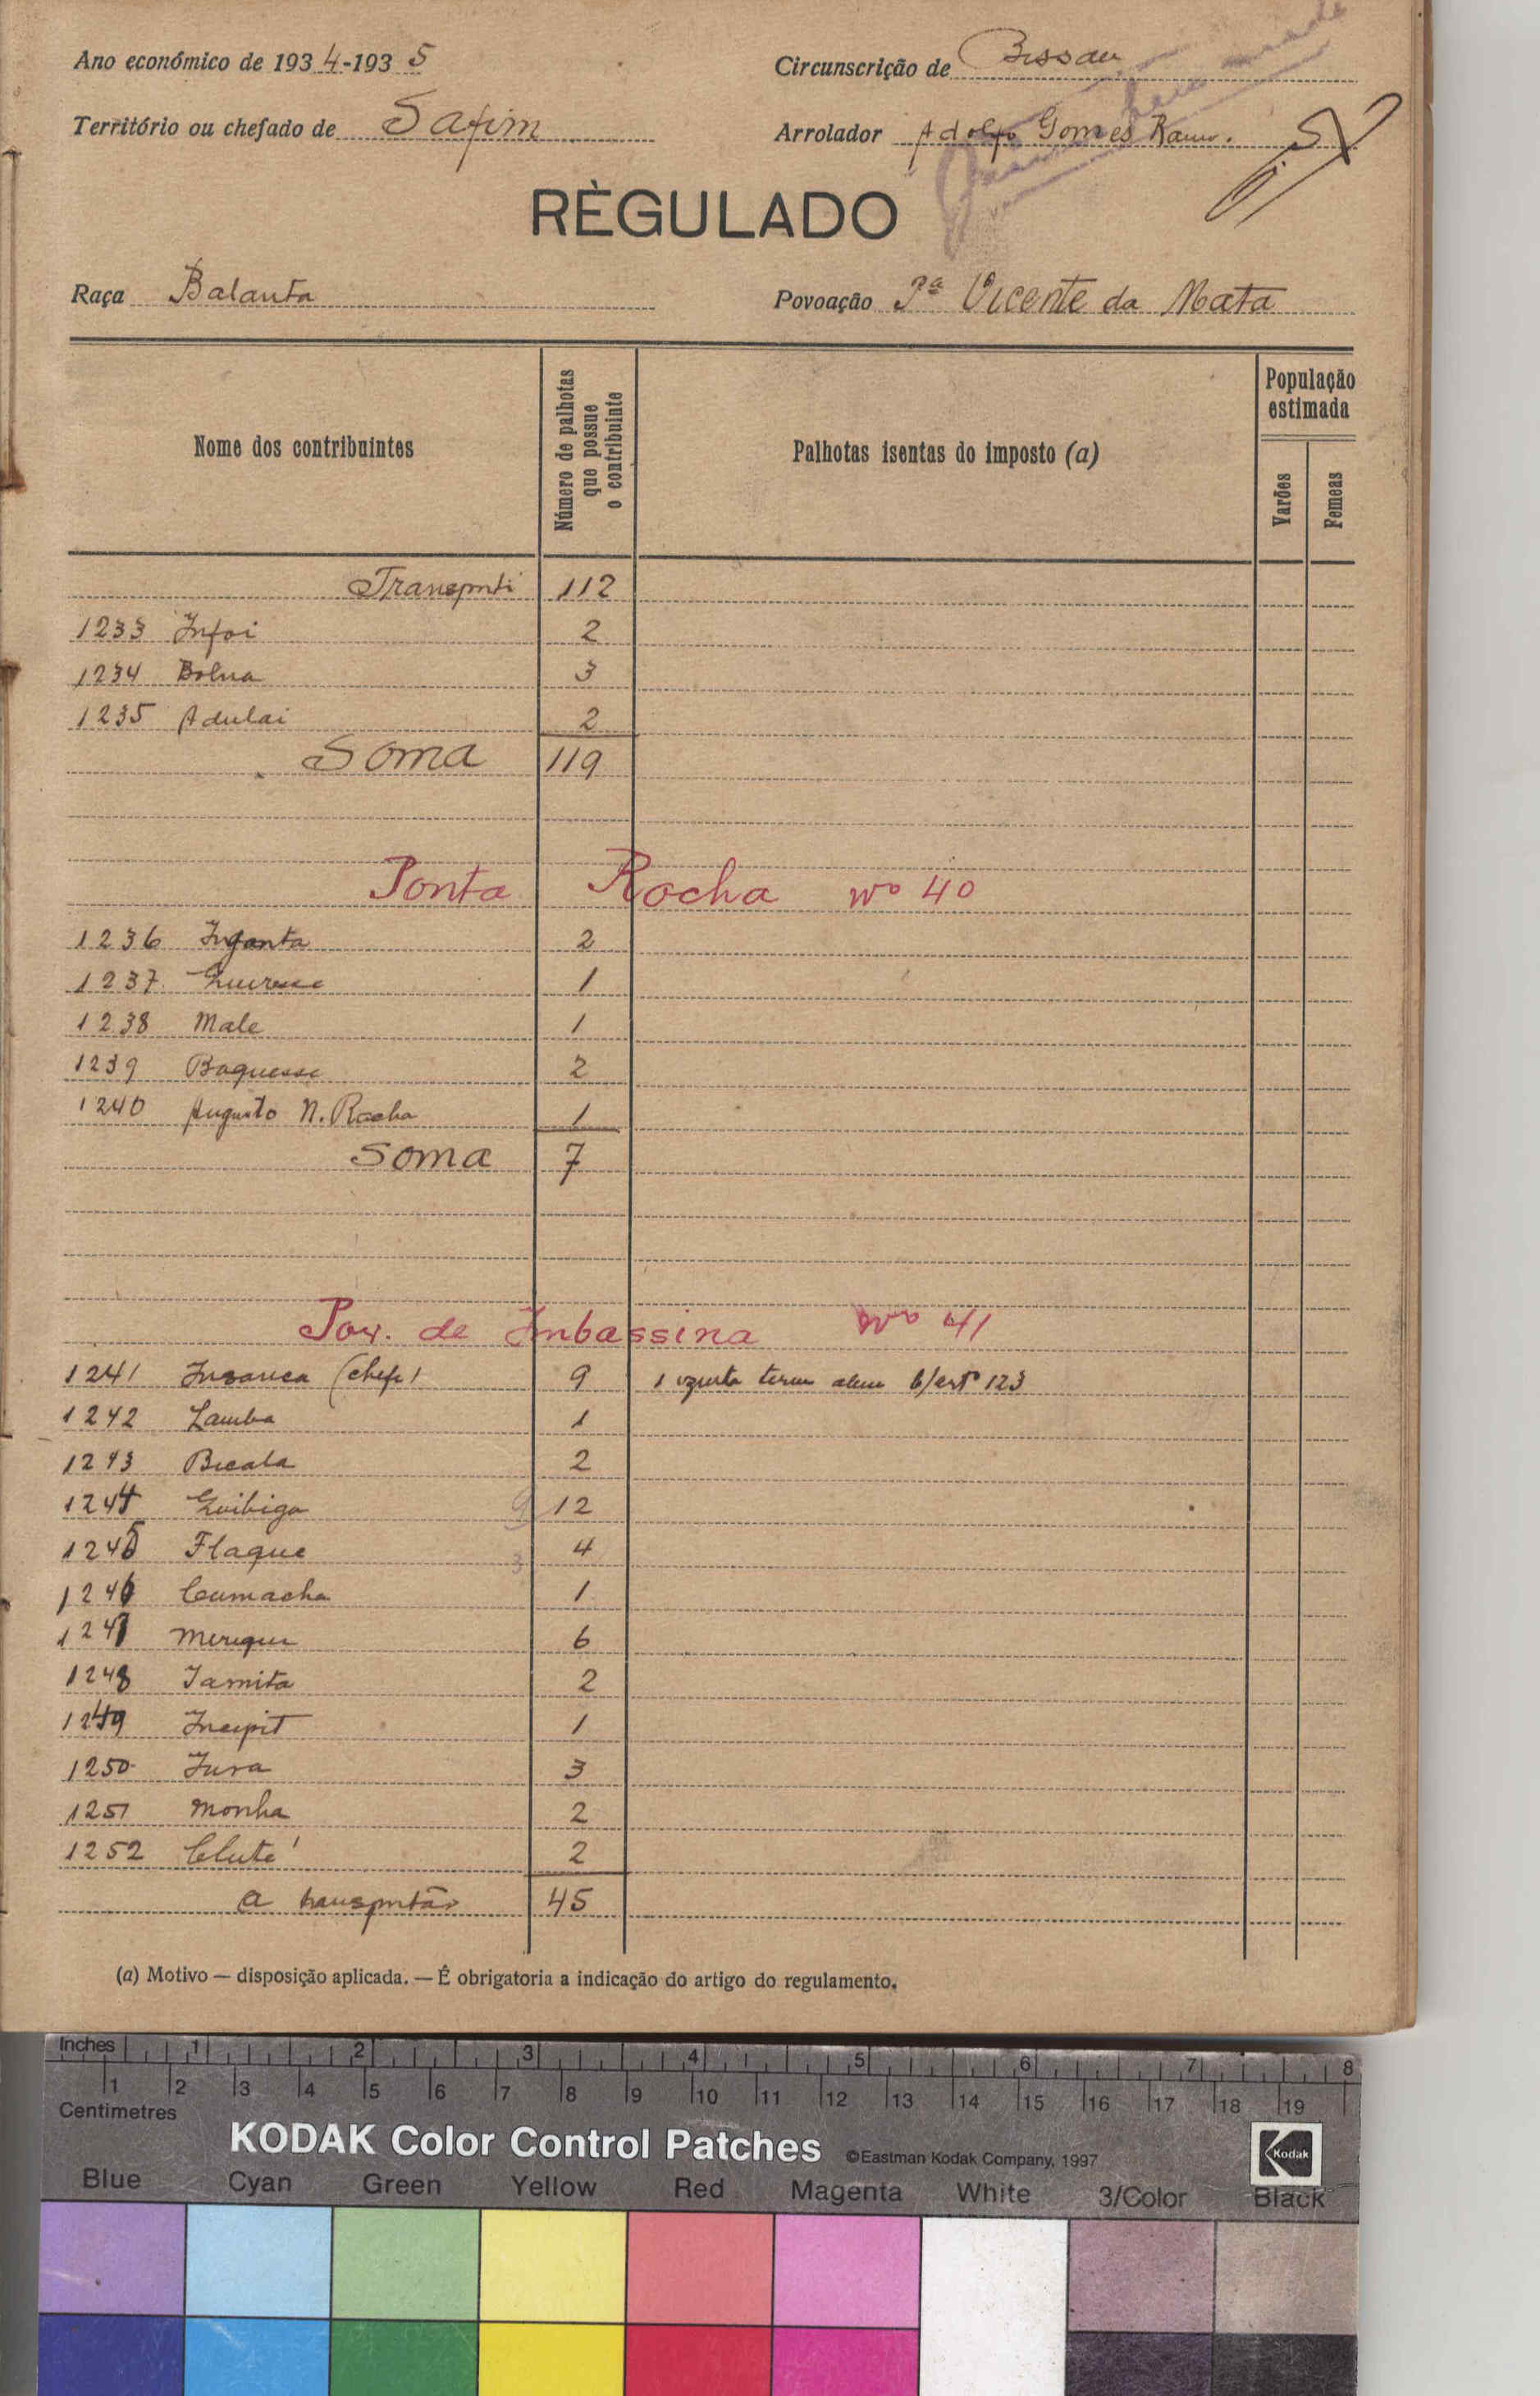 Ano económico de 1934-1935
Circunscrição de Bissau
Território ou chefado de Safim
Arrolador Adolfo Gomes Ramos.
RÈGULADO
Raça Balanta
Povoação Pª Vicente da Mata
Nome dos contribuintes
Número de palhotas que possue o contribuinte
Palhotas isentas do imposto (a)
População estimada
Varões
Femeas
Transporte 112
1233 Infoi 2
1234 Bolna 3
1235 Adulai 2
Soma 119
Ponta Rocha Nº 40
1236 Inganta 2
1237 1
1238 Male 1
1239 Baquesse 2
1240 Augusto N. Rocha 1
Soma 7
Pov. de Imbassina Nº 41
1241 Insanca (chefe) 9 1 123
1242 Lamba 1
1243 Bicala 2
1244 Guibiga 12
1245 Flaque 4
1246 Cumacha 1
1247 Merique 6
1248 Tamita 2
1249 Incipit 1
1250 Jura 3
1251 Monha 2
1252 Cluté 2
a transportar 45
(a) Motivo — disposição aplicada. — É obrigatoria a indicação do artigo do regulamento.
Inches 1 2 3 4 5 6 7 8
1 2 3 4 5 6 7 8 9 10 11 12 13 14 15 16 17 18 19
Centimetres
KODAK Color Control Patches ©Eastman Kodak Company, 1997 Kodak
Blue Cyan Green Yellow Red Magenta White 3/Color Black